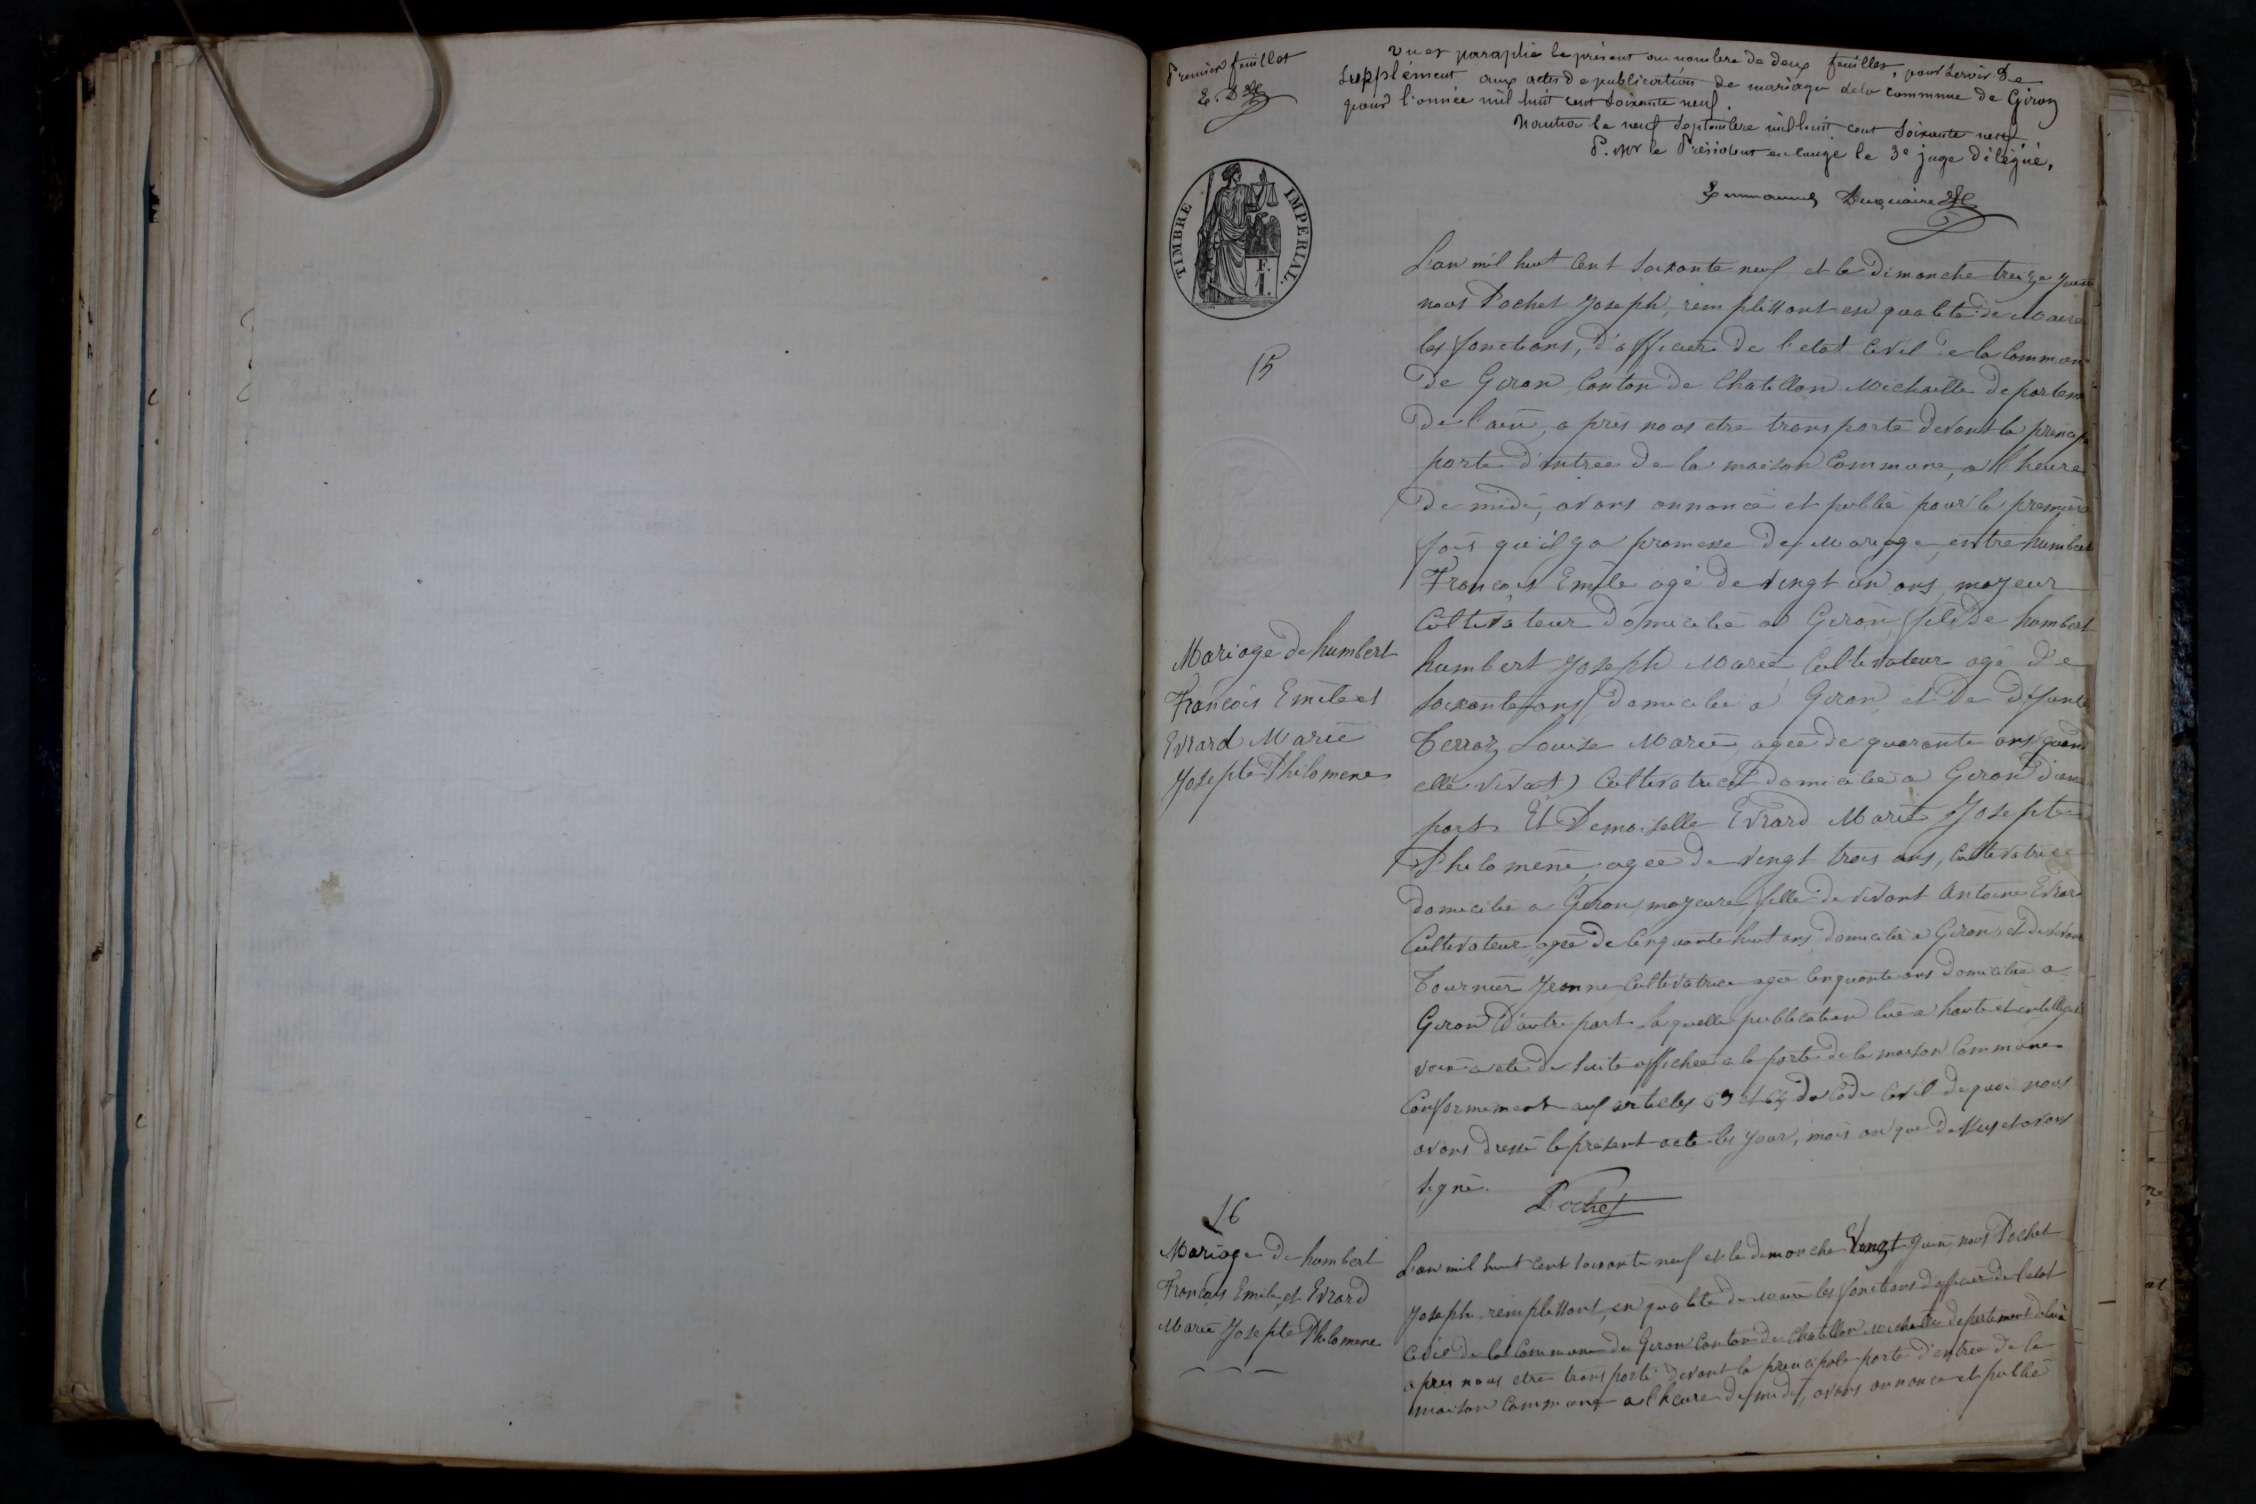 Premier feuillet
E. D
vu et paraphé le présent au nombre de deux feuilles, pour servir de
supplément aux actes de publication de mariage de la commune de Giron
pour l'année mil huit cent soixante neuf.
Nantua le neuf septembre mil huit cent soixante neuf
P. Mr le Président en congé le 3e juge délégué,
TIMBRE IMPERIAL.
F.
1.
15
L'an mil huit cent soixante neuf et le dimanche treize juin
nous Pochet Joseph, remplissant en qualité de Maire
les fonctions, d'officier de l'etat Civil de la Commune
De Giron Canton de Chatillon Michaille departem
De l'ain, a près nous etre transporte devant la princip
porte d'entree de la maison Commune, a l'heure
De midi, avons annoncé et publié pour la première
fois qu'il y a promesse De Mariage entre humbert
François Emile agé de vingt un ans, mayeur
Cultivateur Domicilié a Giron, fils De humbert
humbert Joseph Marie Cultivateur agé de
soixante ans, Domicilié a Giron, et De défunte
Terroz Louise Marie, agée de quarante ans quand
elle vivait) Cultivatrice domiciliée a Giron d'une
part. Et Demoiselle Evrard Marie Josepte
Philomène, agée de vingt trois ans, Cultivatrice
domiciliée a Giron, mayeure fille de vivant Antoine Evrard
Cultivateur, agée De Cinquante huit ans domicilié a Giron, et de vivant
Tournier Jeanne Cultivatrice agée Cinquante ans domiciliée a
Giron D'autre part laquelle publication lue a haute et intelligi
voix a eté de suite affichée a la porte de la maison Commune
Conformement aux articles 63 et 64 du Code Civil de quoi nous
avons dressé le présent acte les jour, mois an que dessus et avons
signé.
Pochet
Mariage de humbert
François Emile et
Evrard Marie
Josepte Philomene
16
Mariage De humbert
François Emile et Evrard
Marie Josepte Philomene
L'an mil huit cent soixante neuf et le dimanche Vingt Juin, nous Pochet
Joseph, remplissant, en qualité de Maire les fonctions d'officier de l'etat
Civil de la Commune de Giron Canton de Chatillon Michaille departement de l'ain
apres nous etre transporté devant la principale porte d'entree de la
maison Commune a l'heure de midi, avons annoncé et publié